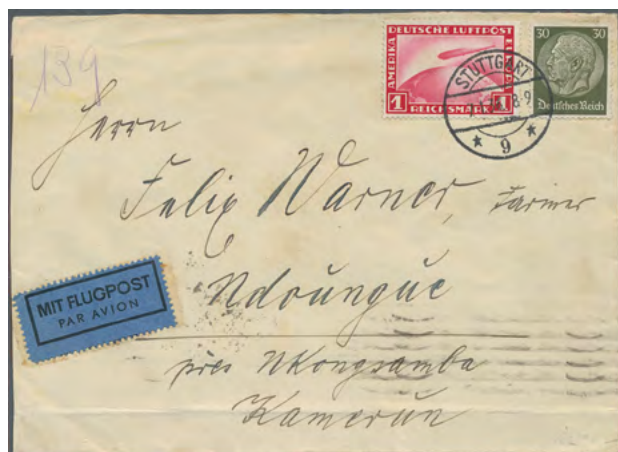 139
DEUTSCHE LUFTPOST
AMERIKA
EUROPA
1 1
REICHSMARK
30 30
Deutsches Reich
STUTTGART
8-9
* 9 *
Herrn
Felix Warner, Farmer
Ndoungue
près Nkongsamba
Kamerun
MIT FLUGPOST
PAR AVION